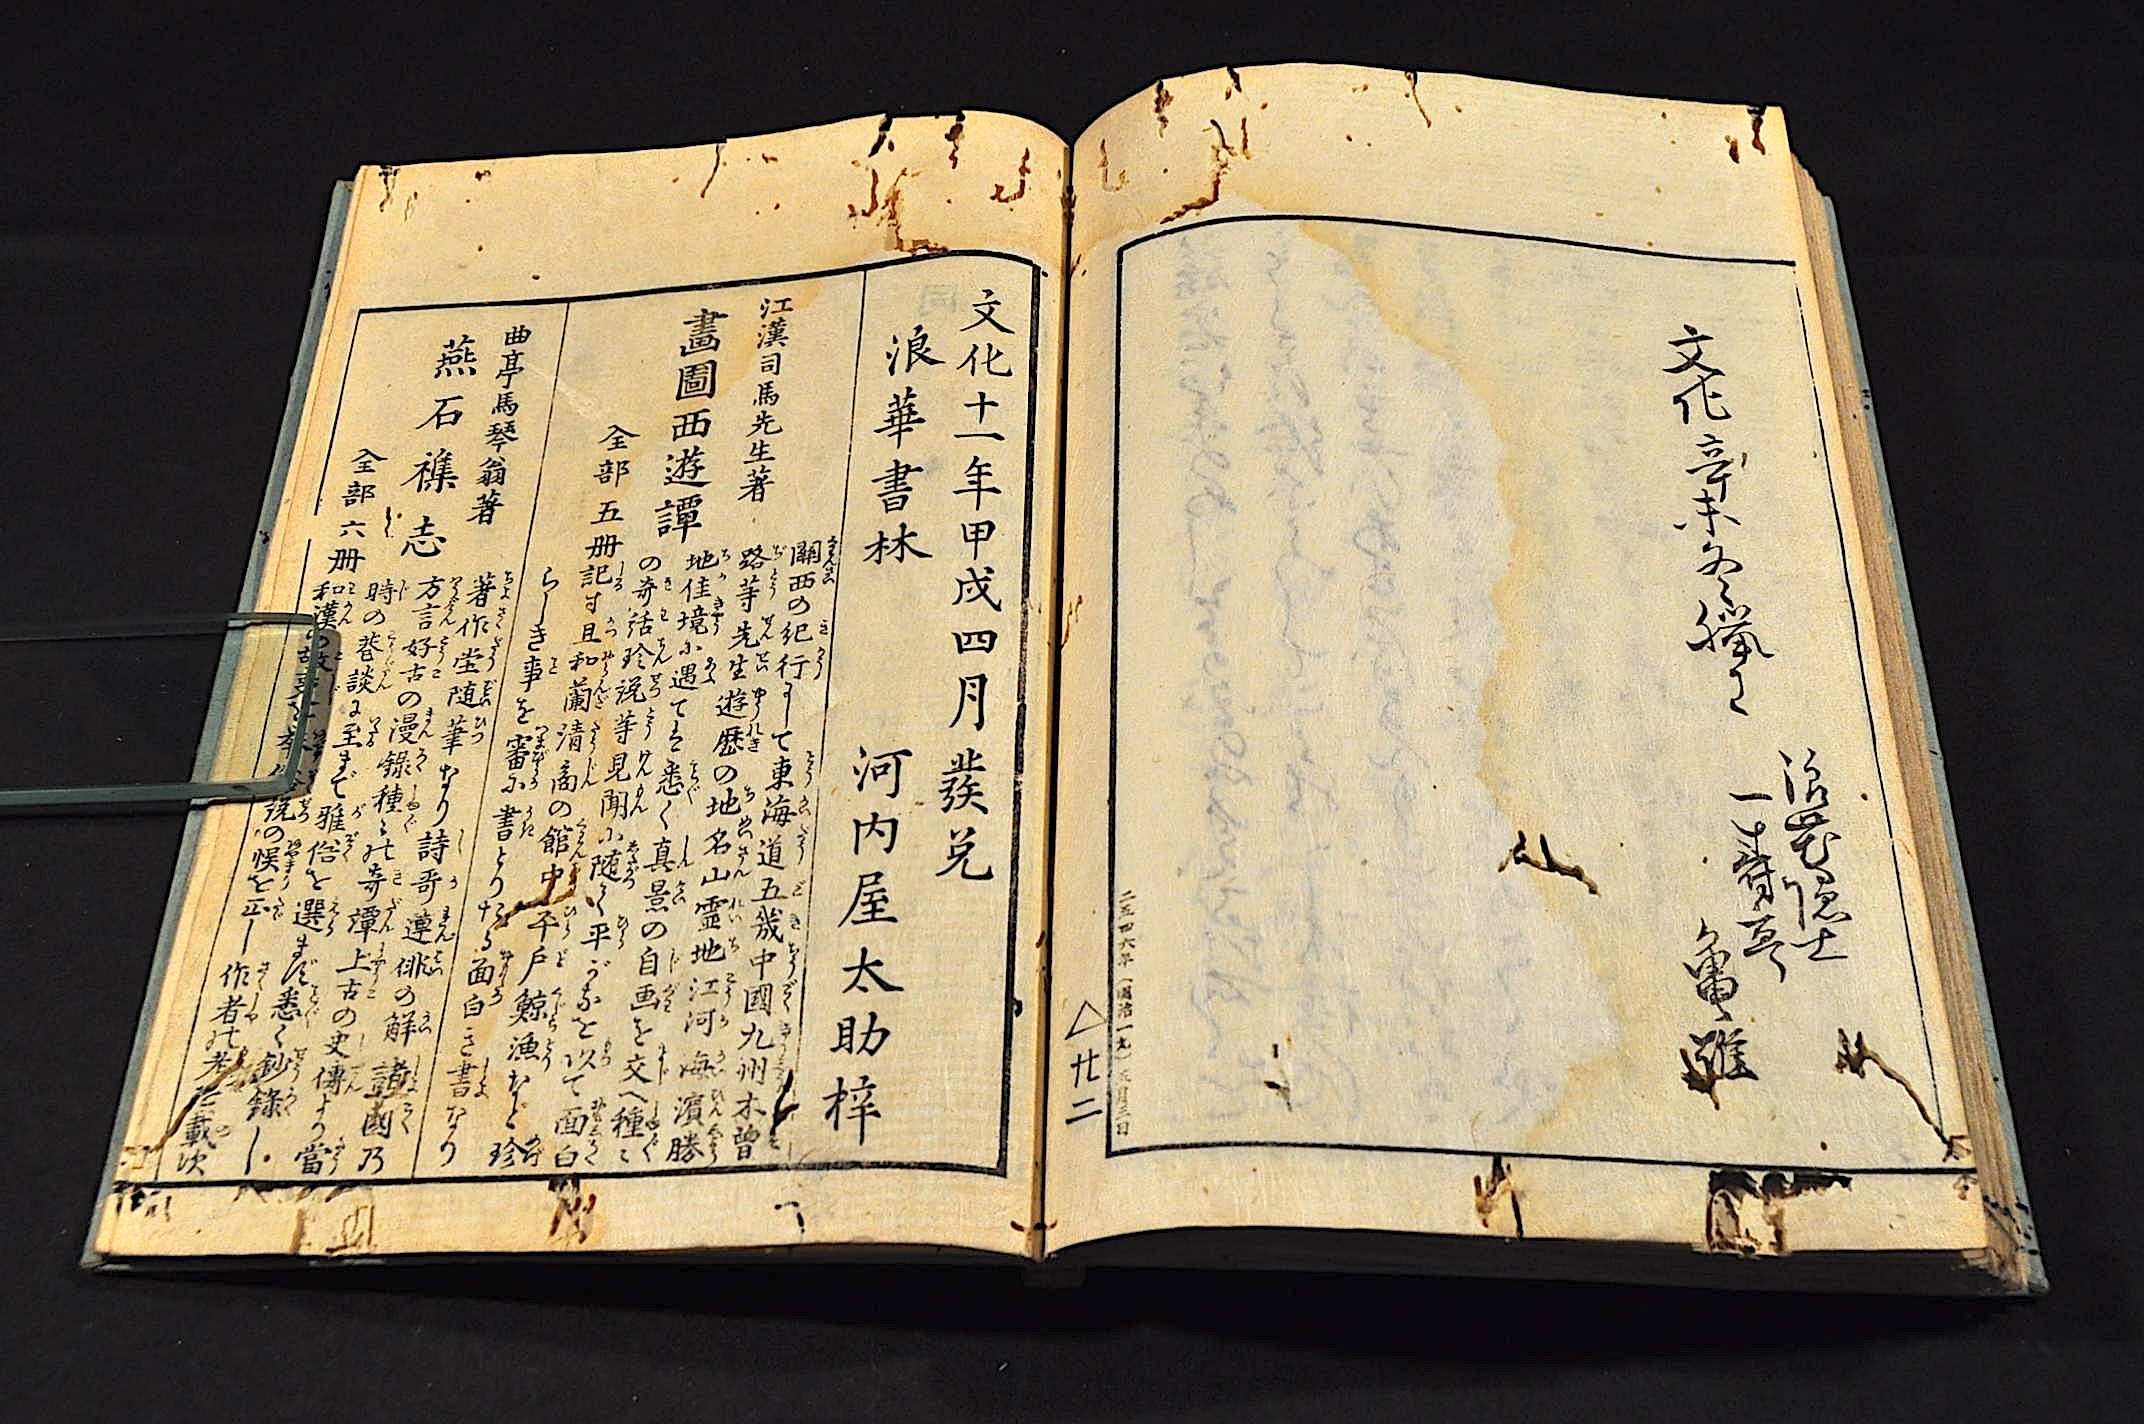 文化辛未冬臘日
浪花隠士
一寿亭
△廿二
文化十一年甲戌四月發兌
浪華書林 河内屋太助梓
江漢司馬先生著
畫圖西遊譚
全部五册
關西の紀行にして東海道五畿中國九州木曽
路等先生遊歴の地名山霊地江河海濱勝
地佳境に遇てハ悉く真景の自画を交へ種々
の奇話珍説等見聞に随て平がなを以て面白
記す且和蘭清商の館中平戸鯨漁など珍
らしき事を審に書とりたる面白き書なり
曲亭馬琴翁著
燕石襍志
全部六册
著作堂随筆なり詩哥連俳の解諸國乃
方言好古の漫錄種々の奇譚上古の史傳より當
時の巷談に至まで雅俗を選まず悉く鈔錄し